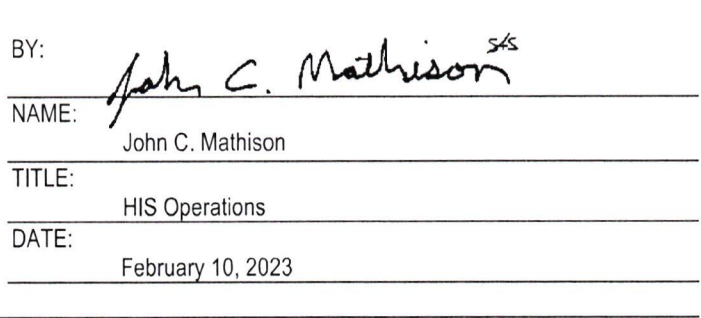 BY: John C. Mathison
NAME:
John C. Mathison
TITLE:
HIS Operations
DATE:
February 10, 2023